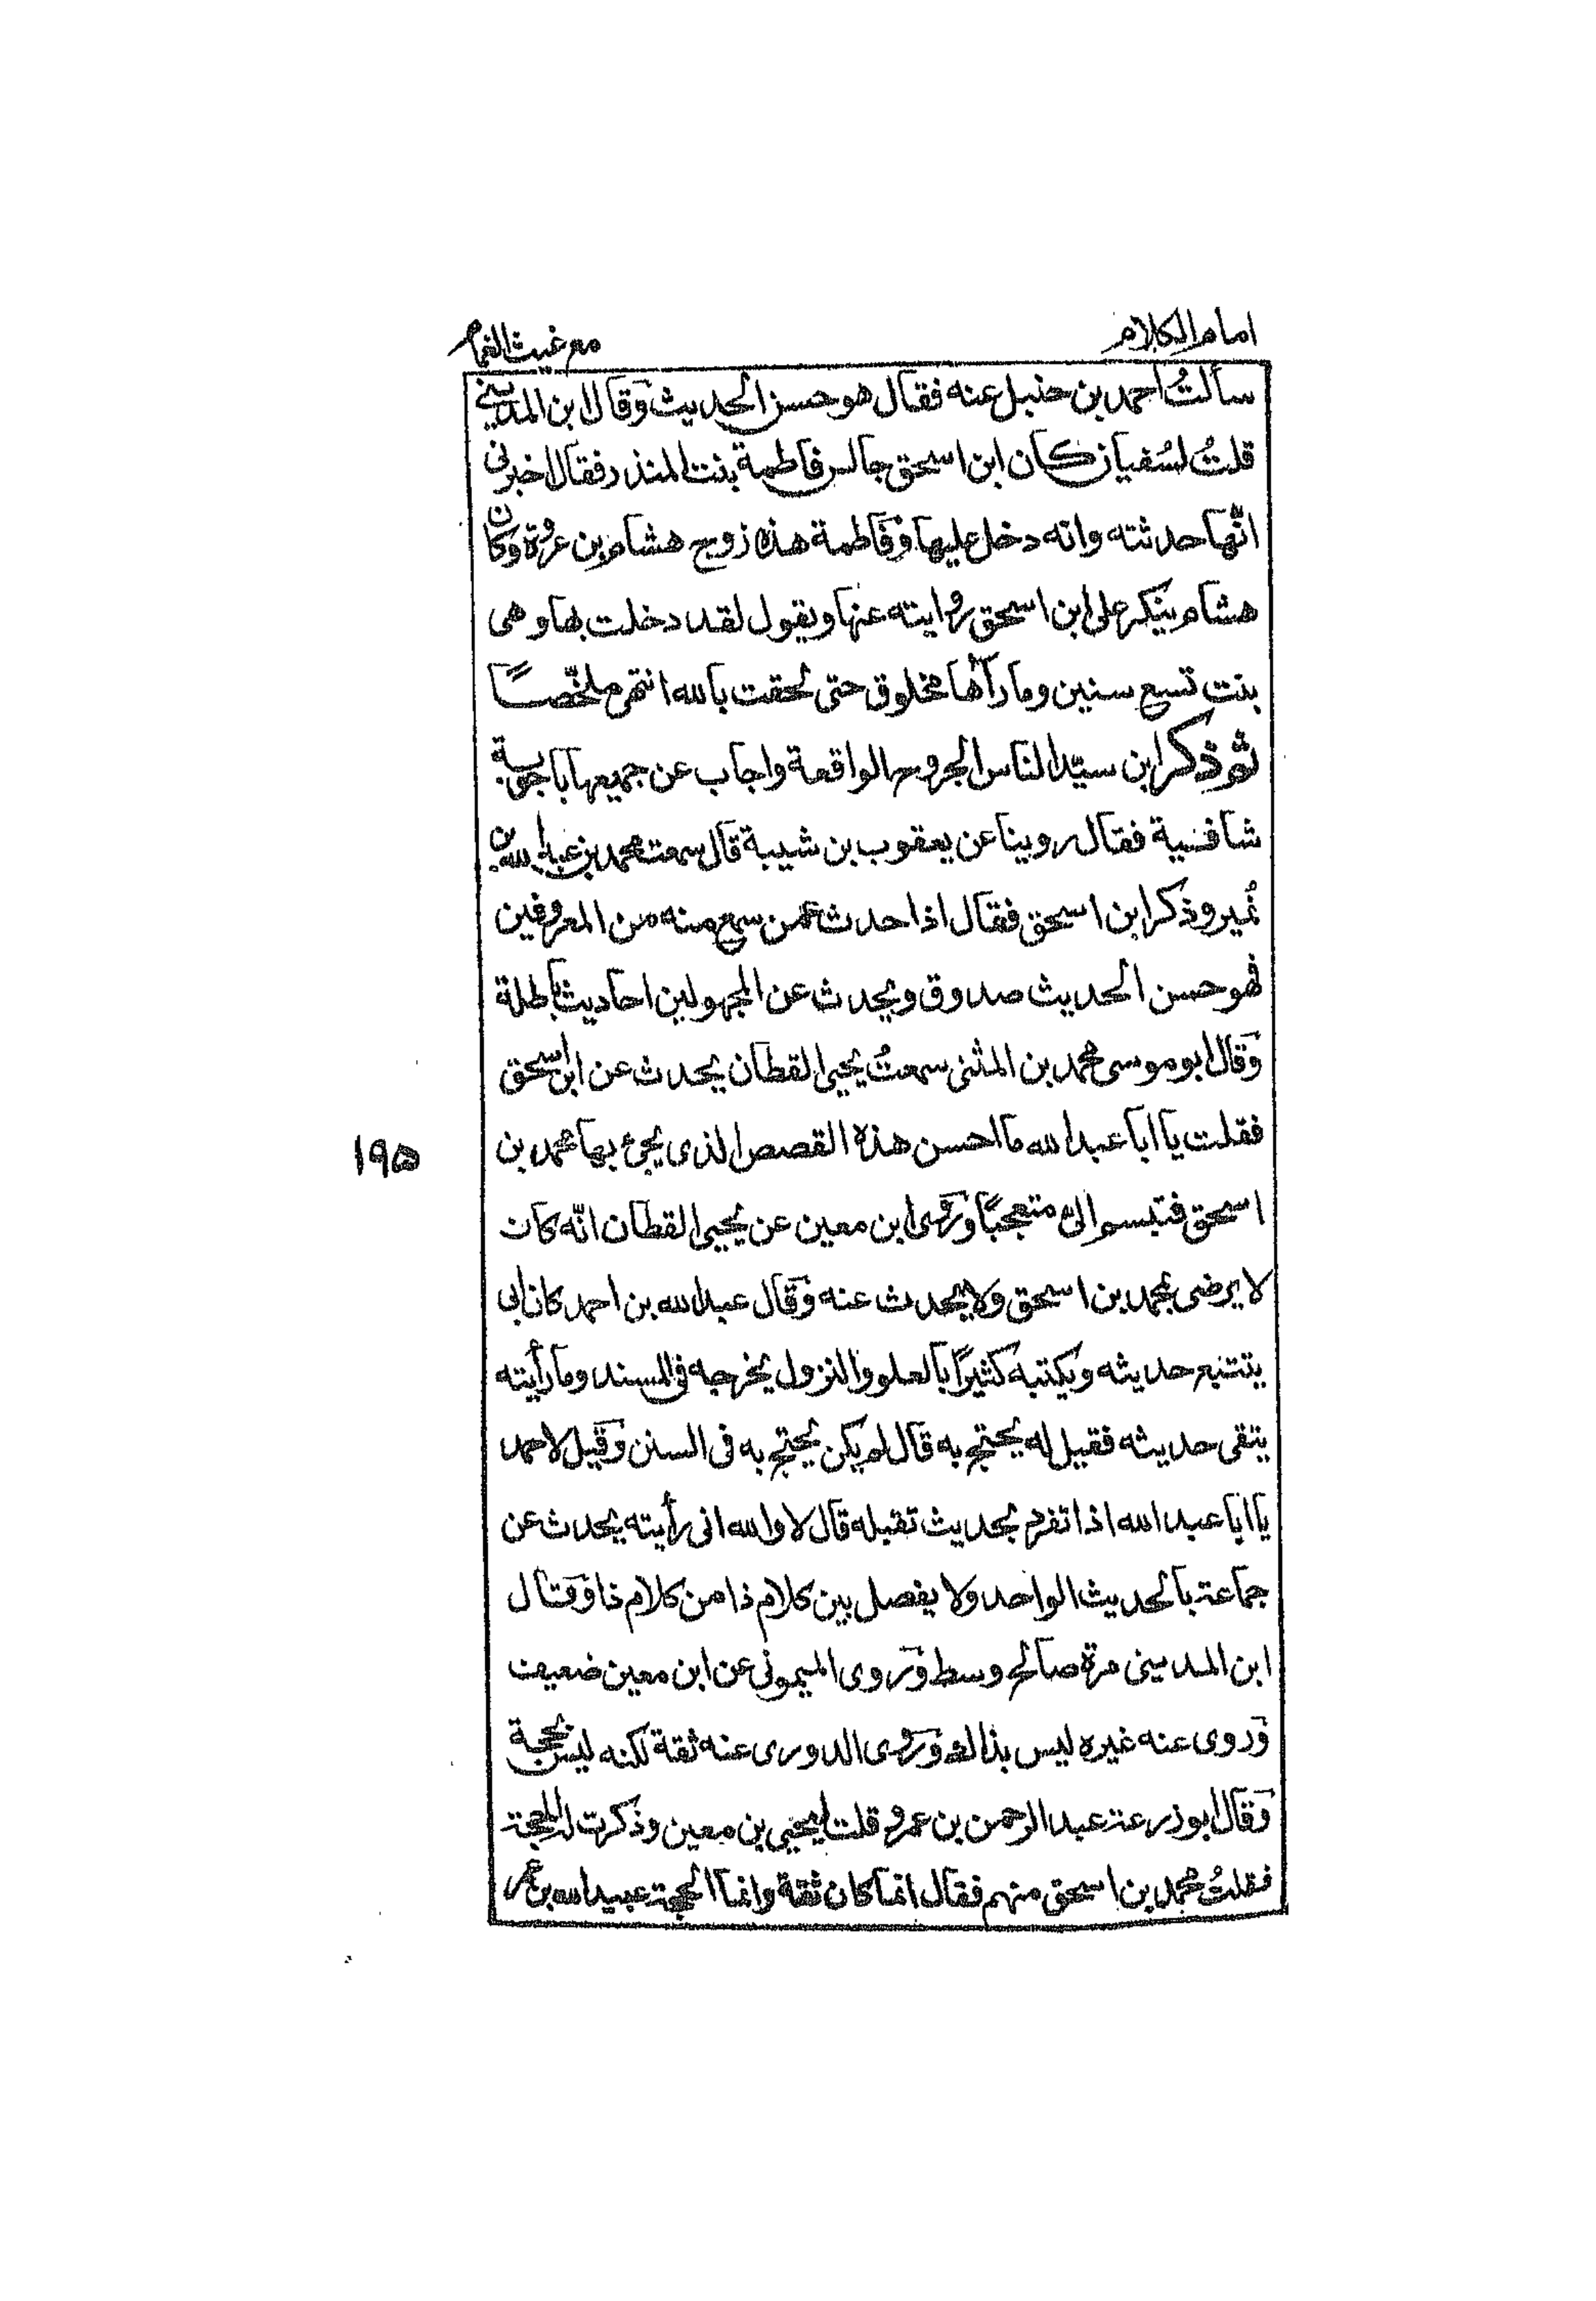 امام الكلام
مع غيث الغمام
سألتُ احمد بن حنبل عنه فقال هو حسن الحديث وقال ابن المديني
قلتُ لسُفيان كان ابن اسحق جالس فاطمة بنت المنذر فقال اخبرنى
انّها حدثته وانه دخل عليها وفاطمة هذه زوج هشام بن عروة وكان
هشام ينكر على ابن اسحق روايته عنها ويقول لقد دخلت بها وهى
بنت تسع سنين وما رآها مخلوق حتى لحقت بالله انتهى ملخّصاً
ثم ذكر ابن سيّد الناس الجروح الواقعة واجاب عن جميعها باجوبة
شافية فقال روينا عن يعقوب بن شيبة قال سمعت محمد بن عبد الله بن
نُمير وذكر ابن اسحق فقال اذا حدث عمن سمع منه من المعروفين
فهو حسن الحديث صدوق ويحدث عن المجهولين احاديث باطلة
وقال ابو موسى محمد بن المثنى سمعتُ يحيى القطان يحدث عن ابن اسحق
فقلت يا ابا عبد الله ما احسن هذه القصص الذى يجئ بها محمد بن
۱۹۵
اسحق فتبسم الىّ متعجبًا وروى ابن معين عن يحيى القطان انّه كان
لا يرضى بمحمد بن اسحق ولا يحدث عنه وقال عبد الله بن احمد كان ابى
يتتبع حديثه ويكتبه كثيرًا بالعلو والنزول يخرجه فى المسند وما رأيته
يتقى حديثه فقيل له يحتج به قال لم يكن يحتج به فى السنن وقيل لاحمد
يا ابا عبد الله اذا تفرد بحديث تقبله قال لا والله انى رأيته يحدث عن
جماعة بالحديث الواحد ولا يفصل بين كلام ذا من كلام ذا وقال
ابن المدينى مرة صالح وسط وروى الميمونى عن ابن معين ضعيف
وروى عنه غيره ليس بذالك وروى الدورى عنه ثقة لكنه ليس بحجة
وقال ابو زرعة عبد الرحمن بن عمرو قلت ليحيى بن معين وذكرت له الحجة
فقلتُ محمد بن اسحق منهم فقال انما كان ثقة وانما الحجة عبيد الله بن عمر